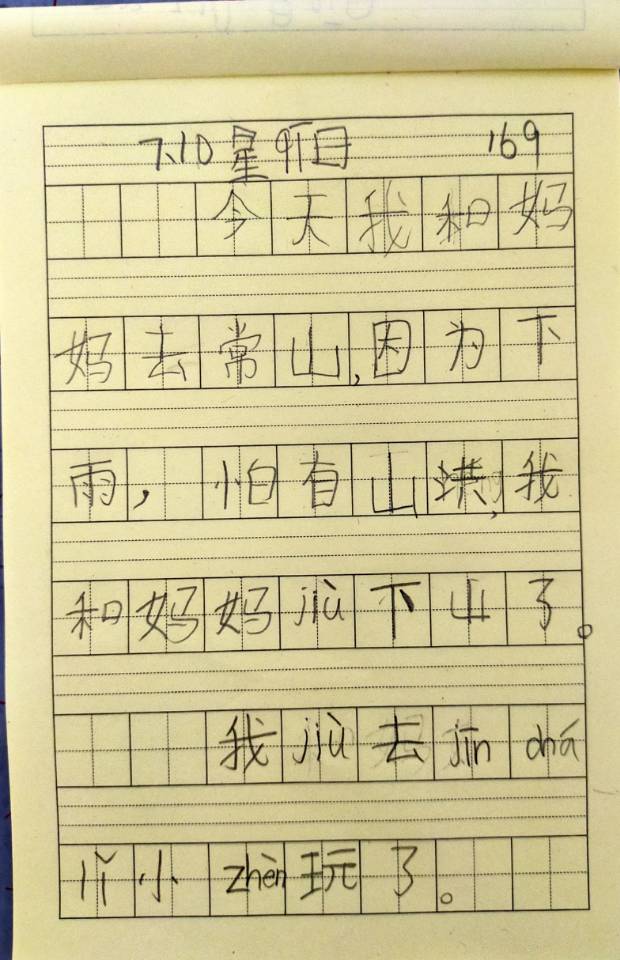 7.10 星期日 169
今天我和妈
妈去常山,因为下
雨,怕有山洪,我
和妈妈jiù下山了。
我jiù去jīn chá
lǐ小zhèn玩了。